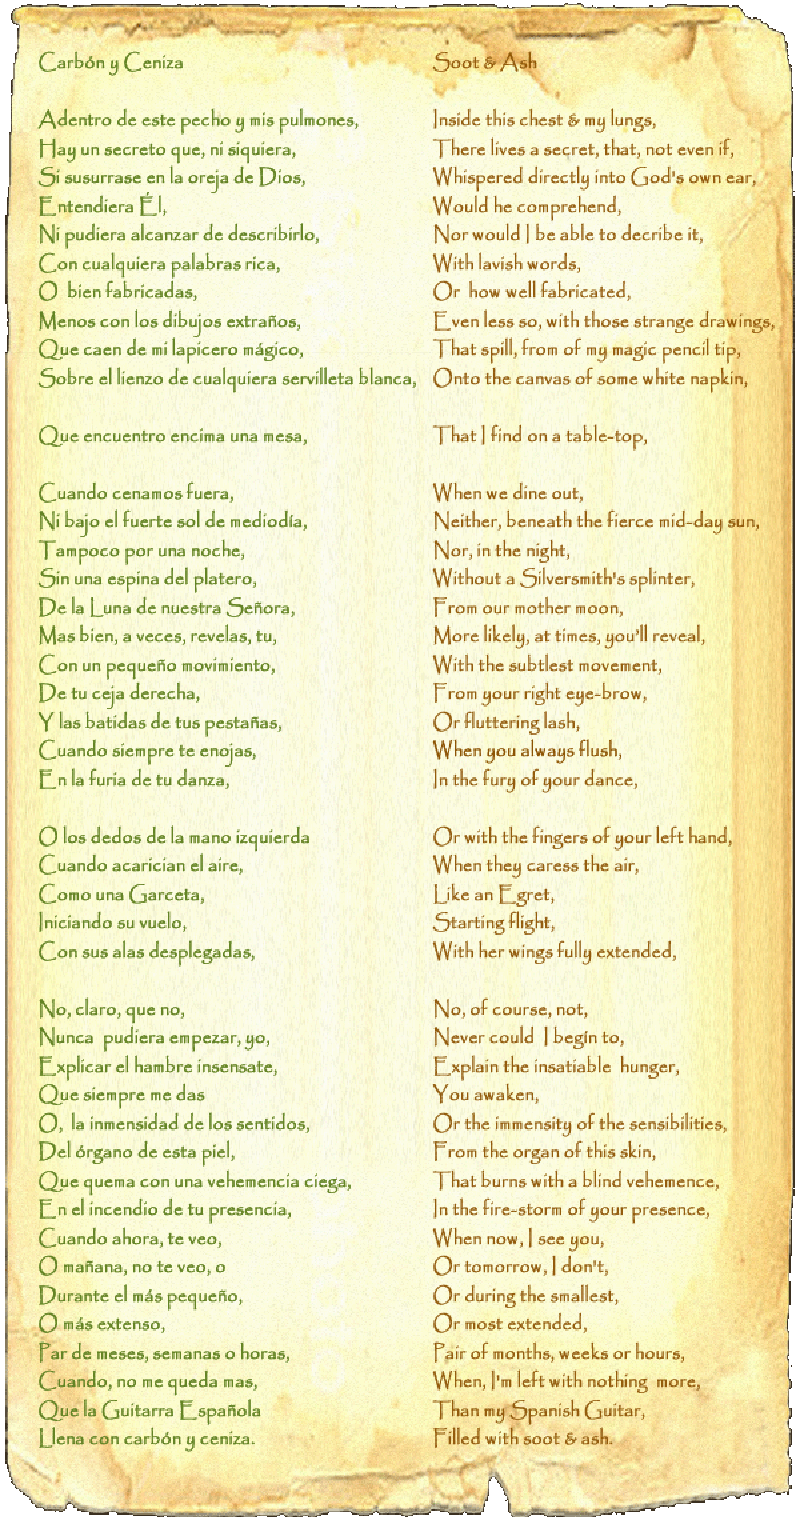 Carbón y Ceniza
Adentro de este pecho y mis pulmones,
Hay un secreto que, ni siquiera,
Si susurrase en la oreja de Dios,
Entendiera Él,
Ni pudiera alcanzar de describirlo,
Con cualquiera palabras rica,
O bien fabricadas,
Menos con los dibujos extraños,
Que caen de mi lapicero mágico,
Sobre el lienzo de cualquiera servilleta blanca,
Que encuentro encima una mesa,
Cuando cenamos fuera,
Ni bajo el fuerte sol de mediodía,
Tampoco por una noche,
Sin una espina del platero,
De la Luna de nuestra Señora,
Mas bien, a veces, revelas, tu,
Con un pequeño movimiento,
De tu ceja derecha,
Y las batidas de tus pestañas,
Cuando siempre te enojas,
En la furia de tu danza,
O los dedos de la mano izquierda
Cuando acarician el aire,
Como una Garceta,
Iniciando su vuelo,
Con sus alas desplegadas,
No, claro, que no,
Nunca pudiera empezar, yo,
Explicar el hambre insensate,
Que siempre me das
O, la inmensidad de los sentidos,
Del órgano de esta piel,
Que quema con una vehemencia ciega,
En el incendio de tu presencia,
Cuando ahora, te veo,
O mañana, no te veo, o
Durante el más pequeño,
O más extenso,
Par de meses, semanas o horas,
Cuando, no me queda mas,
Que la Guitarra Española
Llena con carbón y ceniza.
Soot & Ash
Inside this chest & my lungs,
There lives a secret, that, not even if,
Whispered directly into God's own ear,
Would he comprehend,
Nor would I be able to decribe it,
With lavish words,
Or how well fabricated,
Even less so, with those strange drawings,
That spill, from of my magic pencil tip,
Onto the canvas of some white napkin,
That I find on a table-top,
When we dine out,
Neither, beneath the fierce mid-day sun,
Nor, in the night,
Without a Silversmith's splinter,
From our mother moon,
More likely, at times, you'll reveal,
With the subtlest movement,
From your right eye-brow,
Or fluttering lash,
When you always flush,
In the fury of your dance,
Or with the fingers of your left hand,
When they caress the air,
Like an Egret,
Starting flight,
With her wings fully extended,
No, of course, not,
Never could I begin to,
Explain the insatiable hunger,
You awaken,
Or the immensity of the sensibilities,
From the organ of this skin,
That burns with a blind vehemence,
In the fire-storm of your presence,
When now, I see you,
Or tomorrow, I don't,
Or during the smallest,
Or most extended,
Pair of months, weeks or hours,
When, I'm left with nothing more,
Than my Spanish Guitar,
Filled with soot & ash.